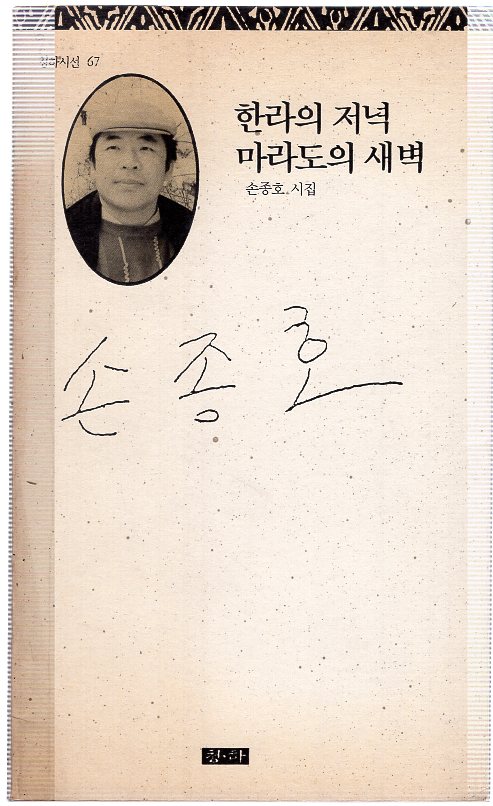 청하시선 67
한라의 저녁
마라도의 새벽
손종호 시집
손종호
청·하